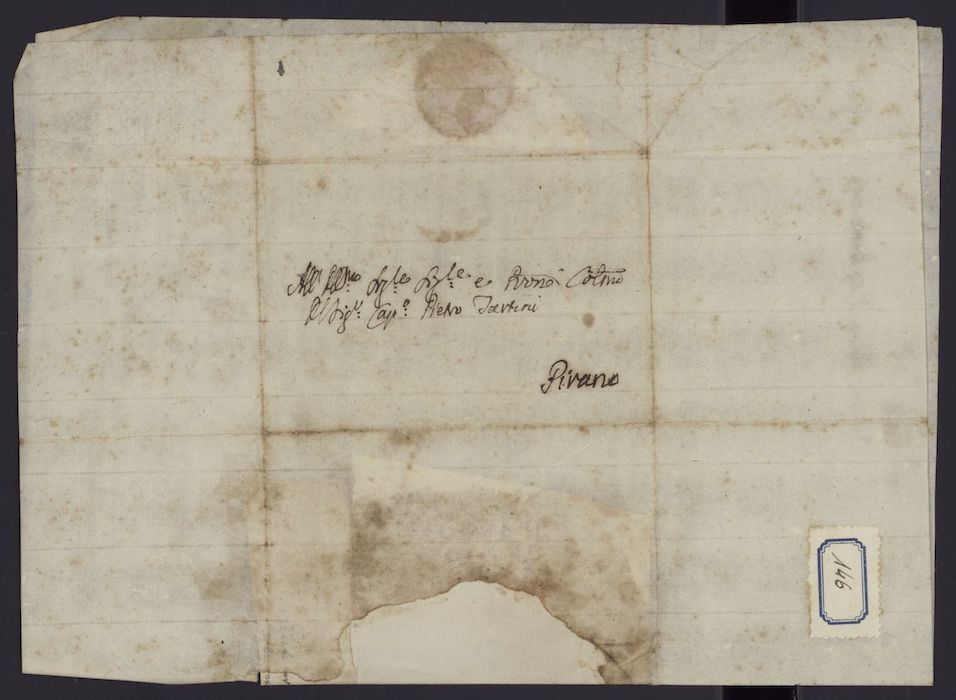 All' Ill.mo Sig.re Sig.re e Pron Colmo
Il Sig.r Cap.o Pietro Tartini
Pirano
146